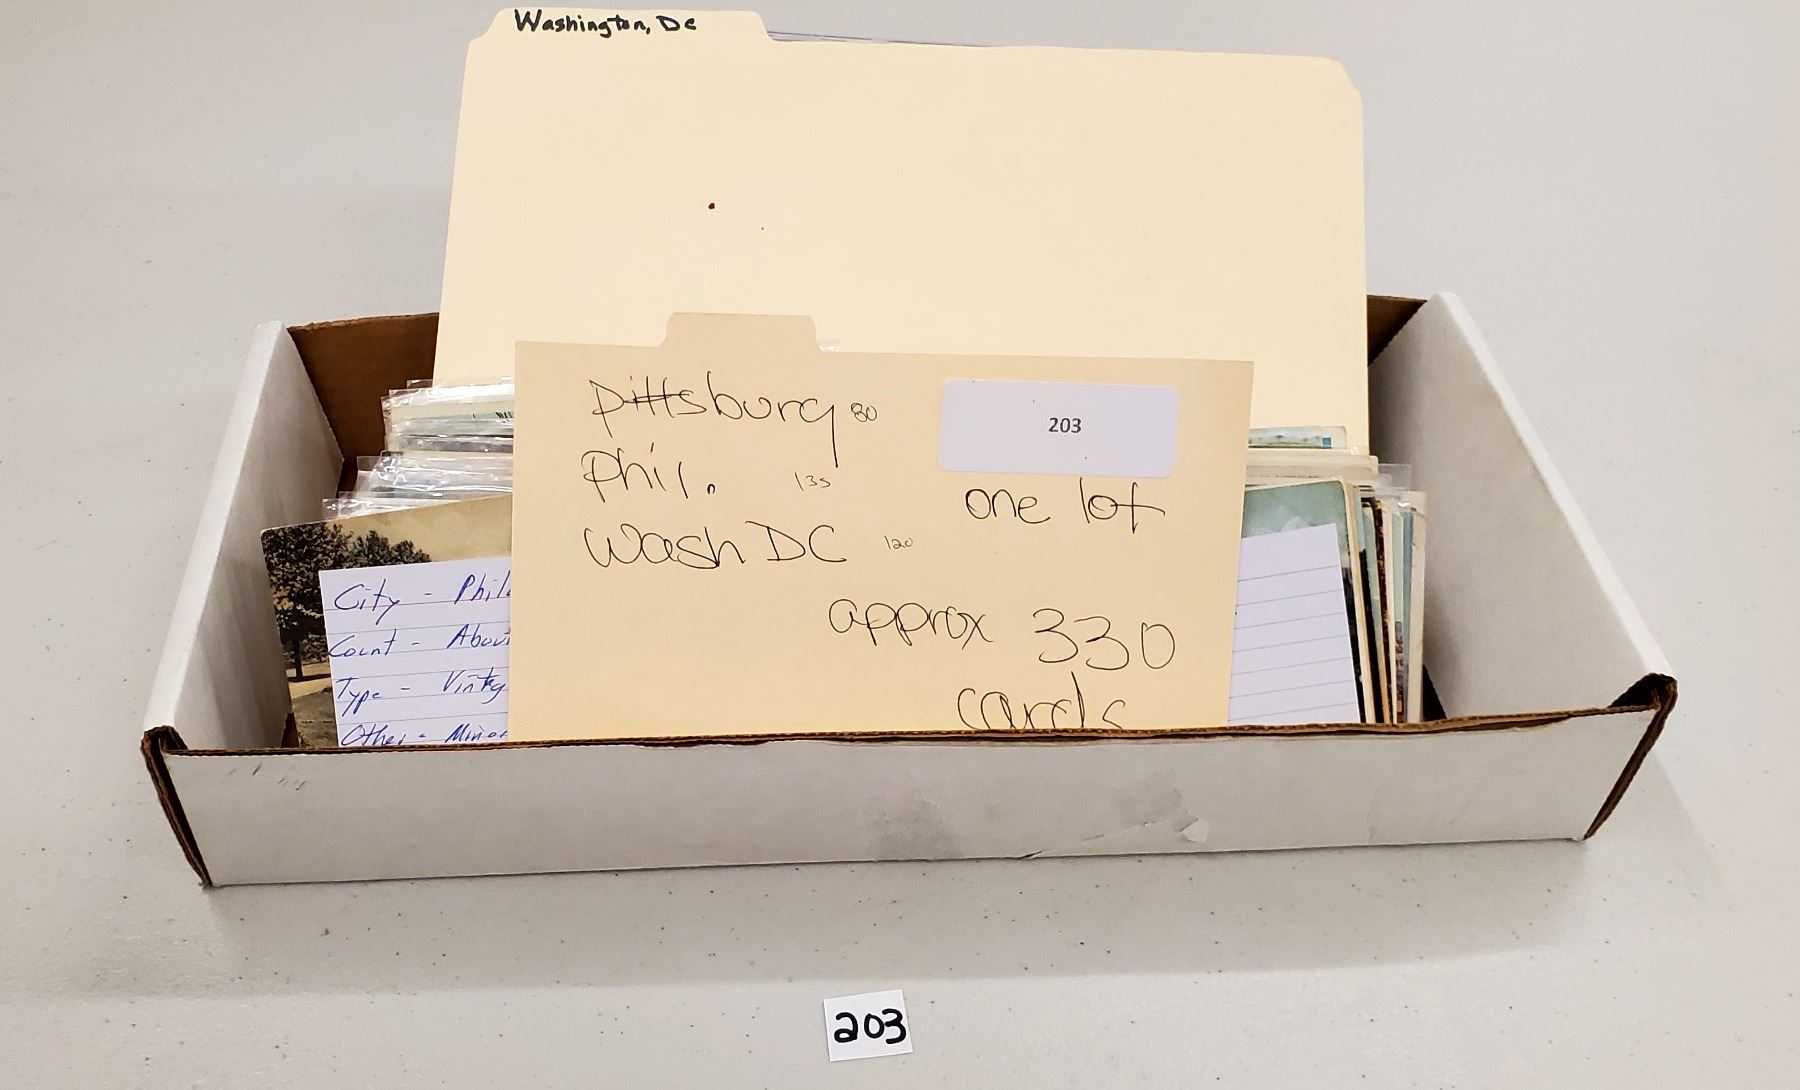 Washington, DC
Pittsburg 80
Phil. 135
Wash DC 120
203
one lot
approx 330
cards
City - Phil
Count - About
Type - Vintag
Other - Minor
203